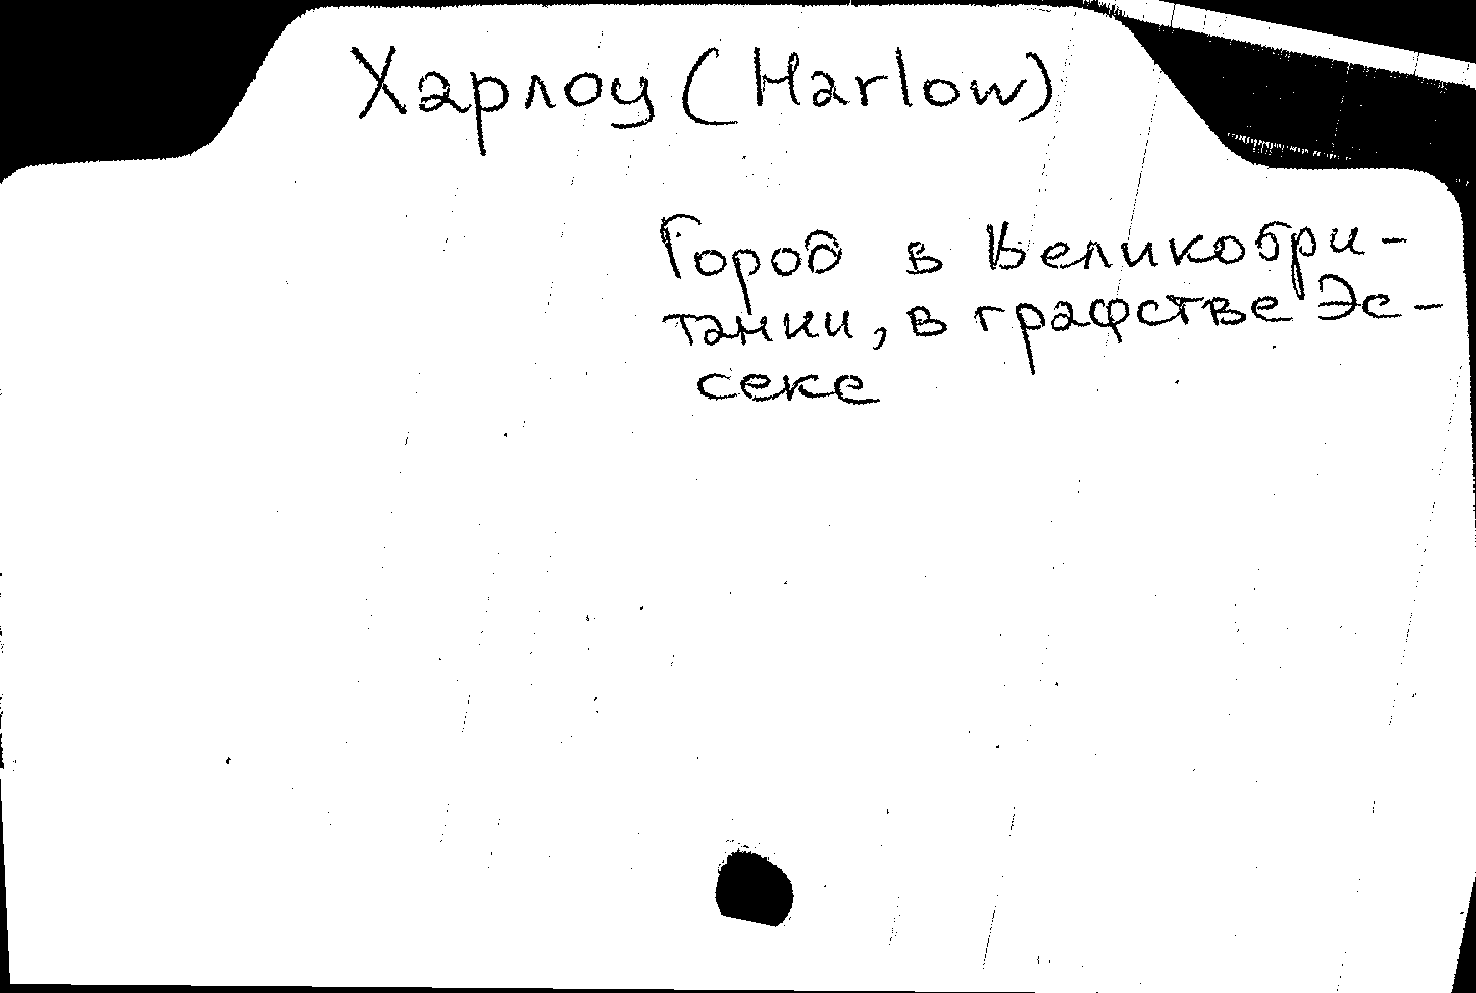 Харлоу (Harlow)
Город в Великобри-
тании, в графстве Эс-
секе